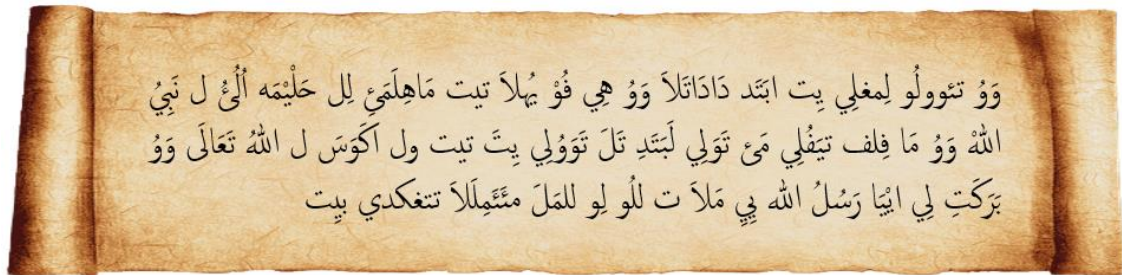 وَوُ تئوولُو لِمغلِي يِت ابَتَد دَادَاتَلاَ وَوُ هِي فُوْ يُهلاَ تيت مَاهِلَمَئِ لِل حَلْيْمَه اُلُئُ ل نَبِيُ
اللهْ وَوُ مَا فِلف تيَفُلِي مَئ تَوَلِي لَبَتَدِ تَلَ تَوَوُلِي يِتَ تيت ول اَكَوَسَ ل اللهُ تَعَالَى وَوُ
بَرَكَتِ لِي ايْيَا رَسُلُ الله يِيِ مَلاَ ت للُو لِو للمَلَ مئَتَمِلَلاَ تتغكدي بيِت